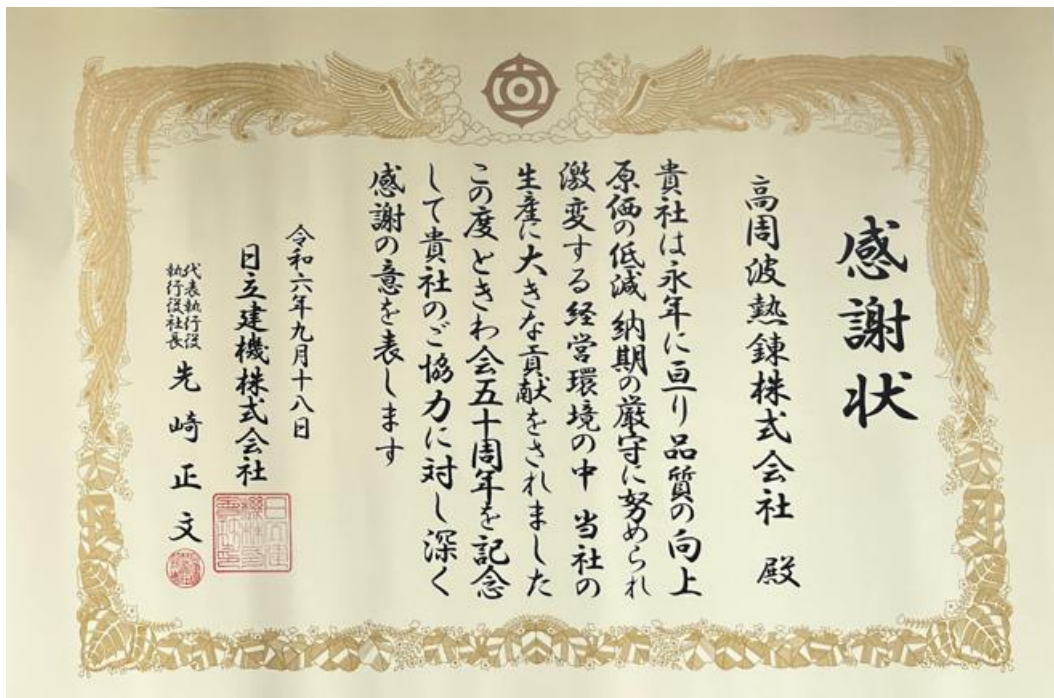 感謝状
高周波熱錬株式会社 殿
貴社は永年に亘り品質の向上
原価の低減 納期の厳守に努められ
激変する経営環境の中 当社の
生産に大きな貢献をされました
この度ときわ会五十周年を記念
して貴社のご協力に対し深く
感謝の意を表します
令和六年九月十八日
日立建機株式会社
代表執行役
執行役社長
先崎正文